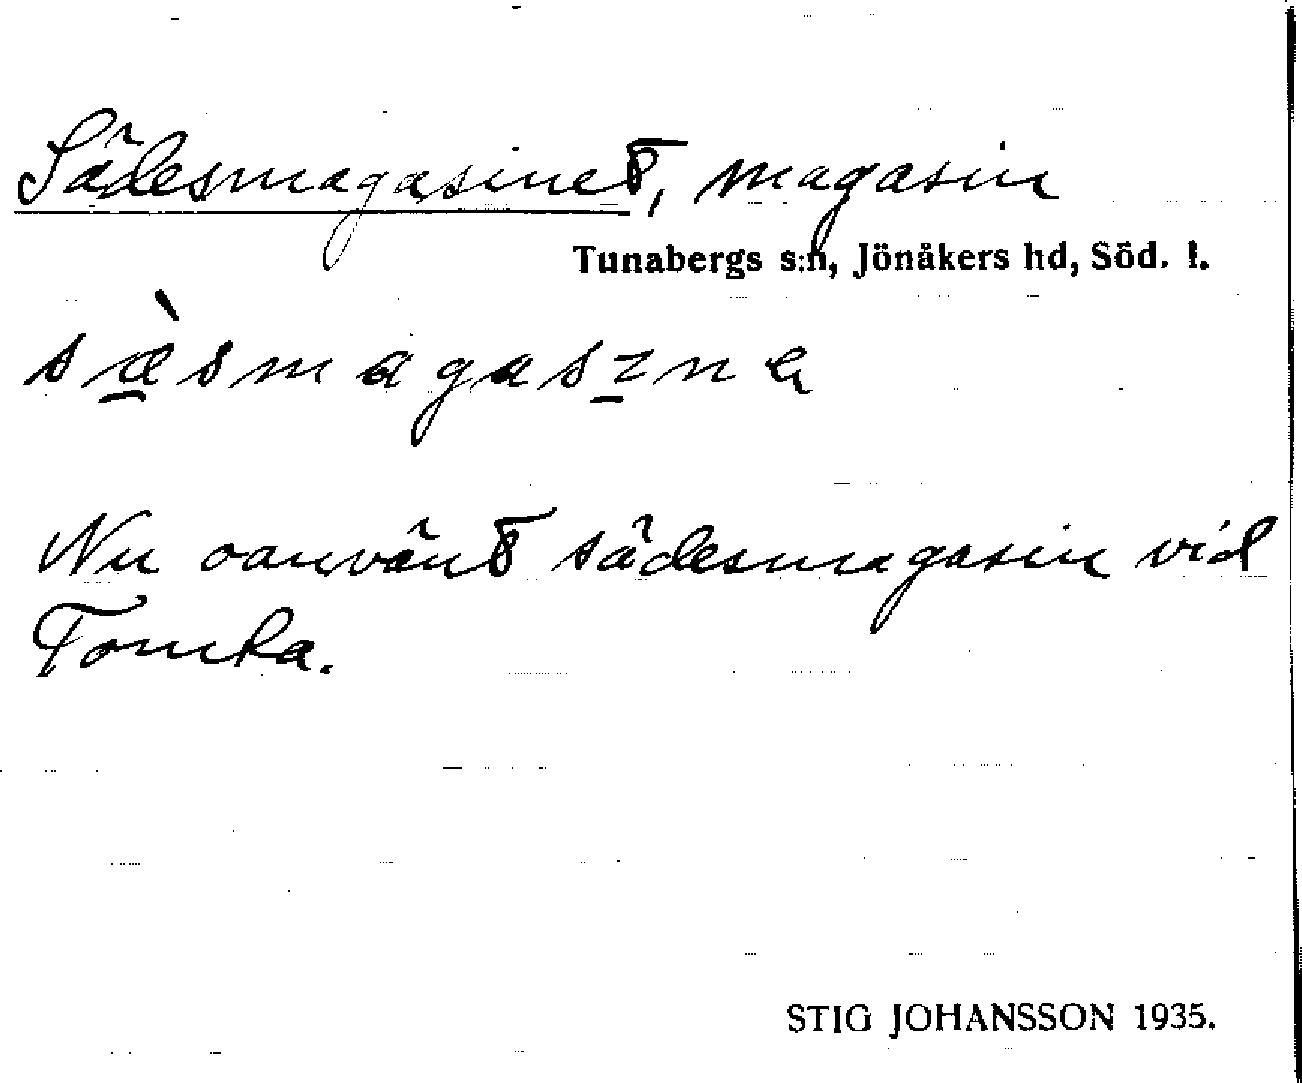 Sädesmagasinet, magasin
Tunabergs s:n, Jönåkers hd, Söd. l.
Nu oanvänt sädesmagasin vid
Tomta.
STIG JOHANSSON 1935.